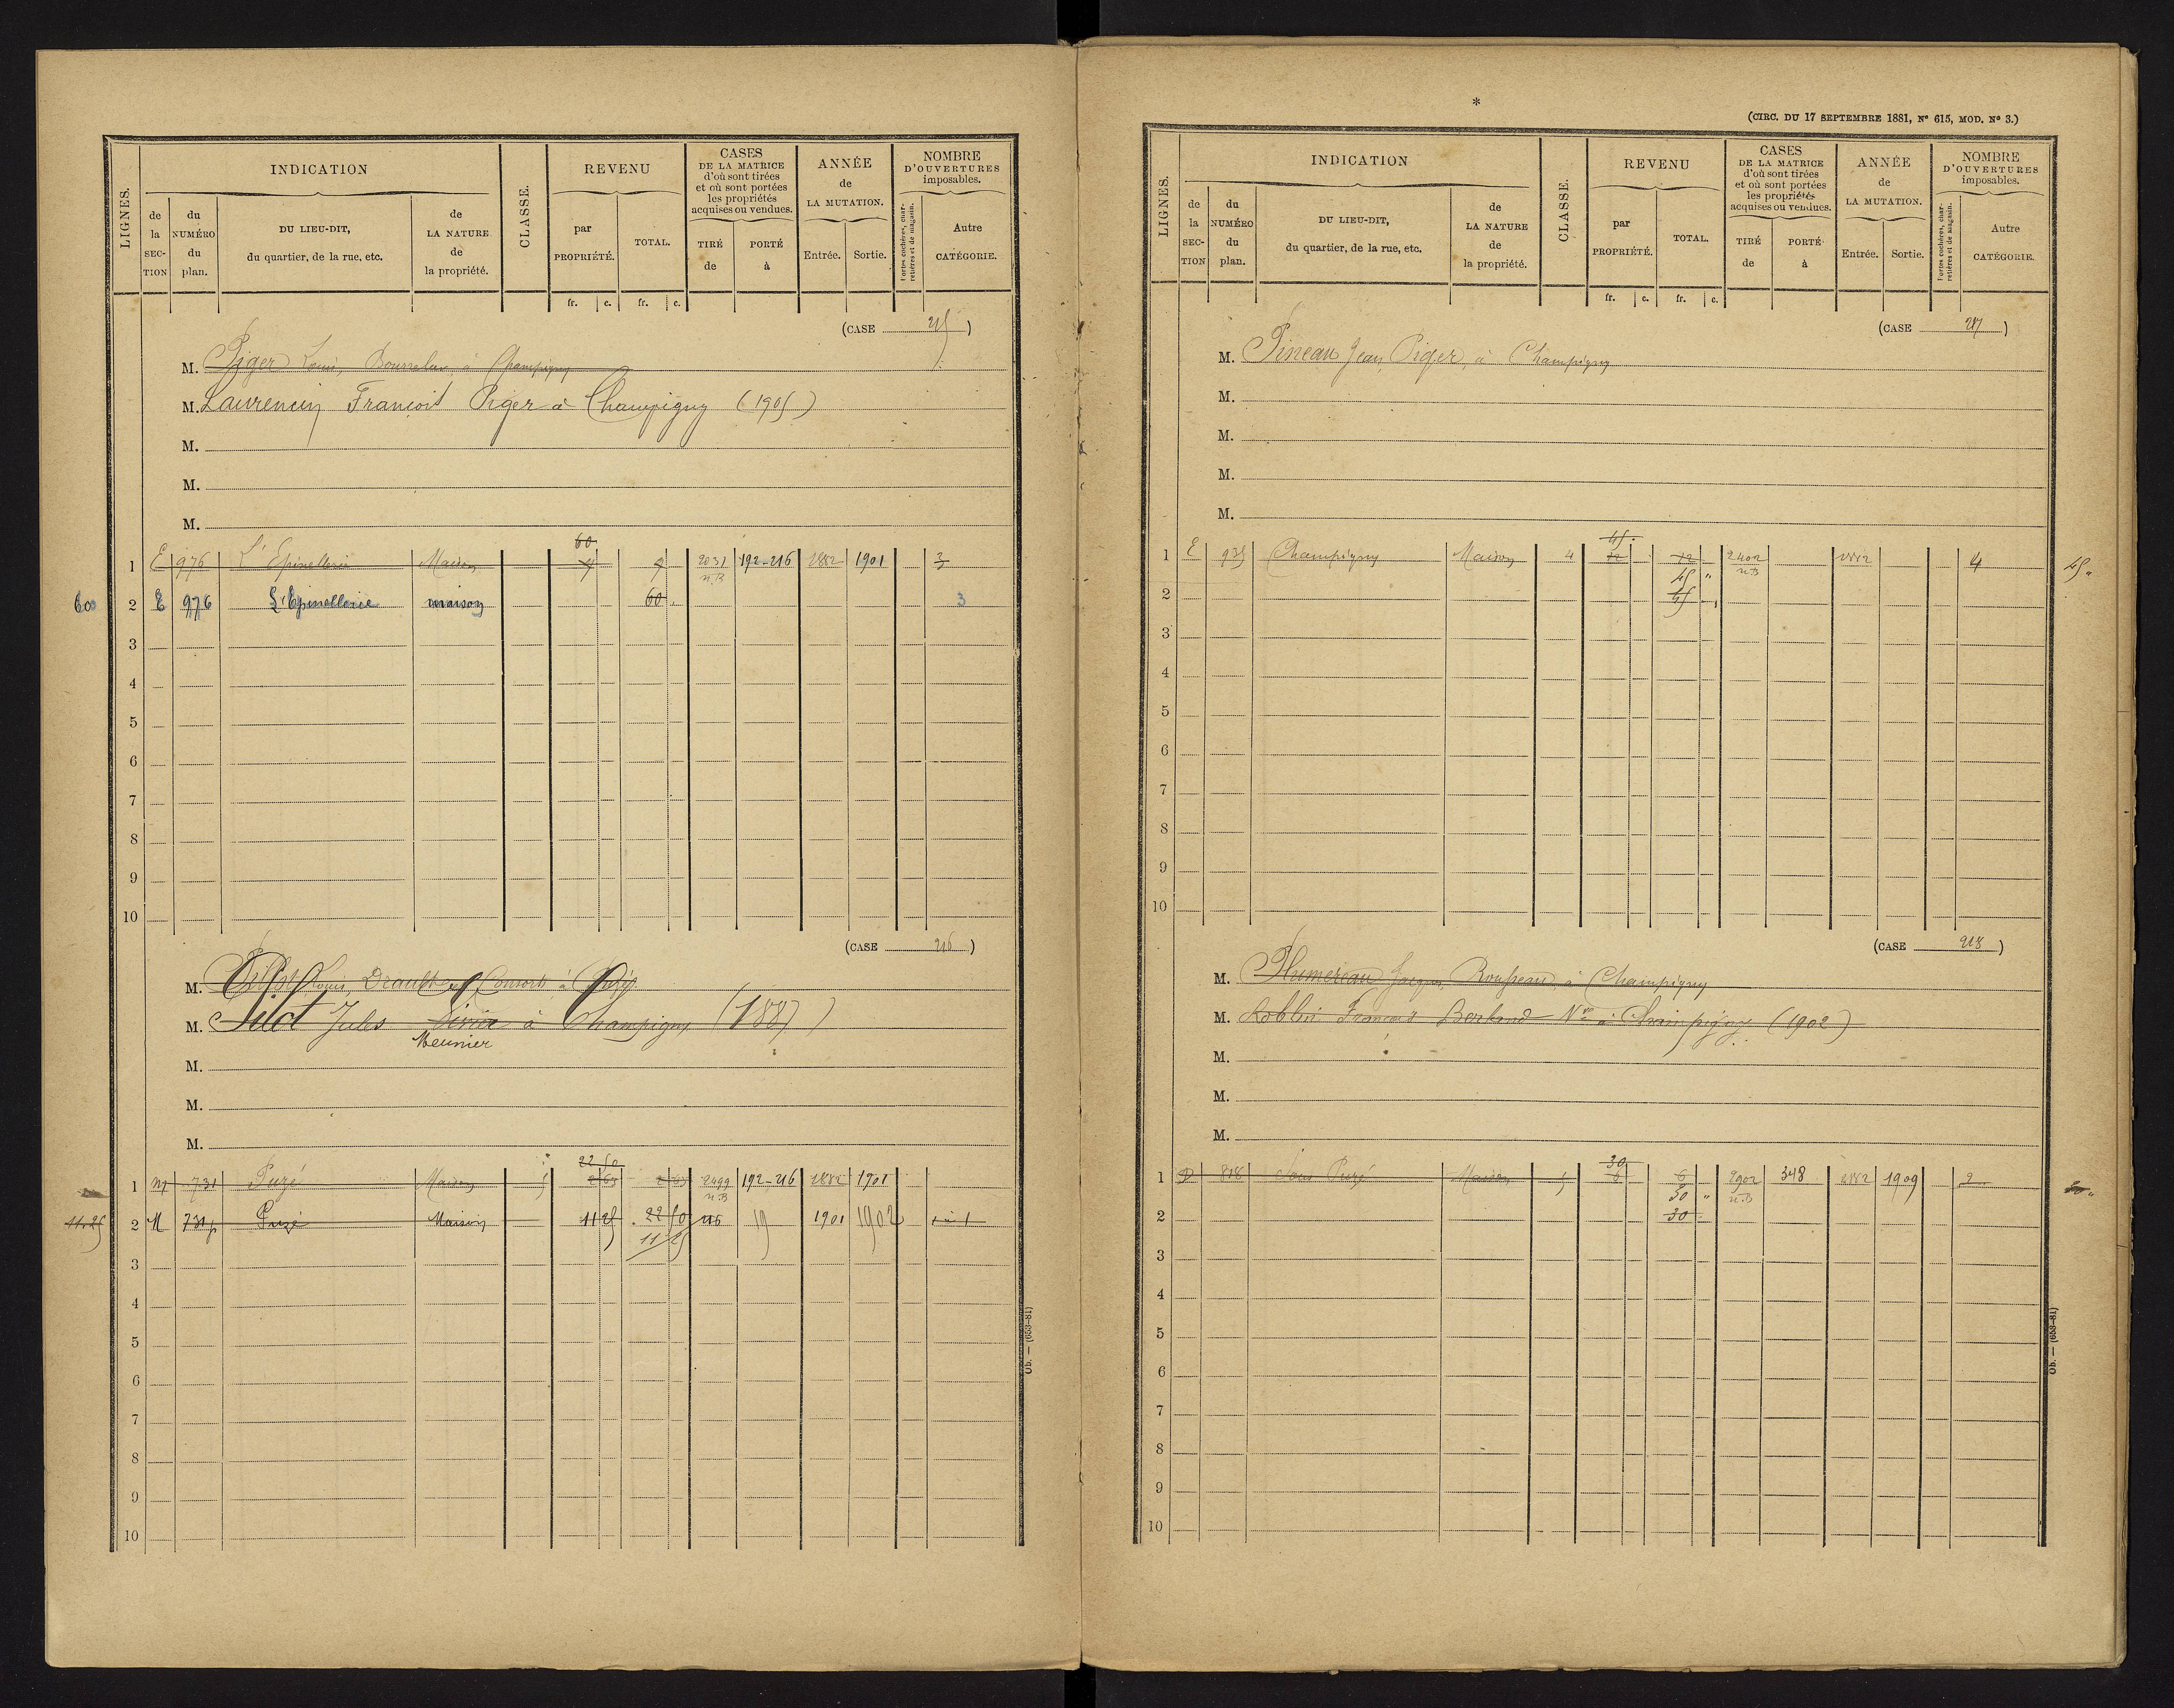 LIGNES.
INDICATION
CLASSE.
REVENU
CASES
DE LA MATRICE
d'où sont tirées
et où sont portées
les propriétés
acquises ou vendues.
ANNÉE
de
LA MUTATION.
NOMBRE
D'OUVERTURES
imposables.
de
la
SEC-
TION
du
NUMÉRO
du
plan.
DU LIEU-DIT,
du quartier, de la rue, etc.
de
LA NATURE
de
la propriété.
par
PROPRIÉTÉ.
TOTAL.
TIRÉ
de
PORTÉ
à
Entrée.
Sortie.
Portes cochères, char-
retières et de magasin.
Autre
CATÉGORIE.
fr. c. fr. c.
(CASE 215)
M. Piger Louis, Bourrelier, à Champigny
M. Laurencin François Piger à Champigny (1905)
M.
M.
M.
60
1 E 976 L'Epinellerie Maison 9 9 2031 192-216 1882 1901 3
n.B
60 2 E 976 L'Epinellerie maison 60 3
3
4
5
6
7
8
9
10
(CASE 216)
M. Pilot Louis, Drault et Consorts à Puzé
M. Pilot Jules à Champigny (1887)
Meunier
M.
M.
M.
22 50
1 M 731 Puzé Maison 5 2499 192-216 1882 1901
n.B
11.25 2 M 731p Puzé Maison 11 25 22 50 216 19 1901 1902 1
11 25
3
4
5
6
7
8
9
10
Ob. — (653-81)
*
(CIRC. DU 17 SEPTEMBRE 1881, Nº 615, MOD. Nº 3.)
LIGNES.
INDICATION
CLASSE.
REVENU
CASES
DE LA MATRICE
d'où sont tirées
et où sont portées
les propriétés
acquises ou vendues.
ANNÉE
de
LA MUTATION.
NOMBRE
D'OUVERTURES
imposables.
de
la
SEC-
TION
du
NUMÉRO
du
plan.
DU LIEU-DIT,
du quartier, de la rue, etc.
de
LA NATURE
de
la propriété.
par
PROPRIÉTÉ.
TOTAL.
TIRÉ
de
PORTÉ
à
Entrée.
Sortie.
Portes cochères, char-
retières et de magasin.
Autre
CATÉGORIE.
fr. c. fr. c.
(CASE 217)
M. Pineau Jean, Piger, à Champigny
M.
M.
M.
M.
45
1 E 935 Champigny Maison 4 12 12 2402 1882 4 45 "
45 " n.B
2 45
3
4
5
6
7
8
9
10
(CASE 218)
M. Plumereau Jacques, Rousseau, à Champigny
M. Roblin François Berland Nre à Champigny (1902)
M.
M.
M.
30
1 D 818 Puzé Maison 5 6 6 2902 348 1882 1909 2
30 " n.B
2 30
3
4
5
6
7
8
9
10
Ob. — (653-81)